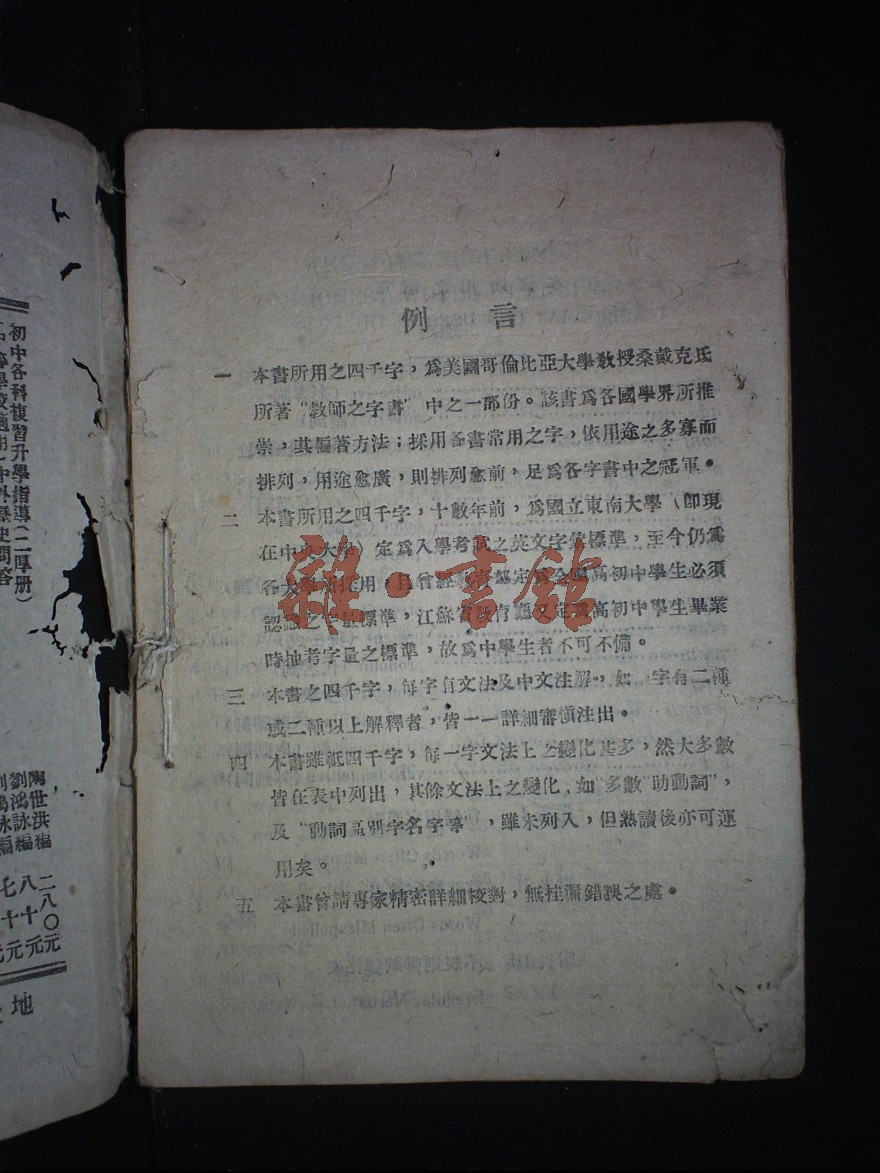 例言
一 本書所用之四千字，為美國哥倫比亞大學教授桑戴克氏
所著“教師之字書”中之一部份。該書為各國學界所推
崇，其編著方法；採用各書常用之字，依用途之多寡而
排列，用途愈廣，則排列愈前，足為各字書中之冠軍。
二 本書所用之四千字，十數年前，為國立東南大學（卽現
在中央大學）定為入學考試之英文字彙標準，至今仍為
各大學所採用，且曾經教育部定為全國高初中學生必須
認識之字量標準，江蘇省教育廳又定為高初中學生畢業
時抽考字量之標準，故為中學生者不可不備。
三 本書之四千字，每字有文法及中文注解，如一字有二種
或二種以上解釋者，皆一一詳細審愼注出。
四 本書雖祗四千字，每一字文法上之變化甚多，然大多數
皆在表中列出，其餘文法上之變化，如“多數”助動詞”，
及“動詞區別字名字等”，雖未列入，但熟讀後亦可運
用矣。
五 本書曾請專家精密詳細校對，無挂漏錯誤之處。
雜·書館
初中各科複習升學指導（二厚册）
陶世洪編 二八〇元
劉鴻詠編 八十元
七十元
地